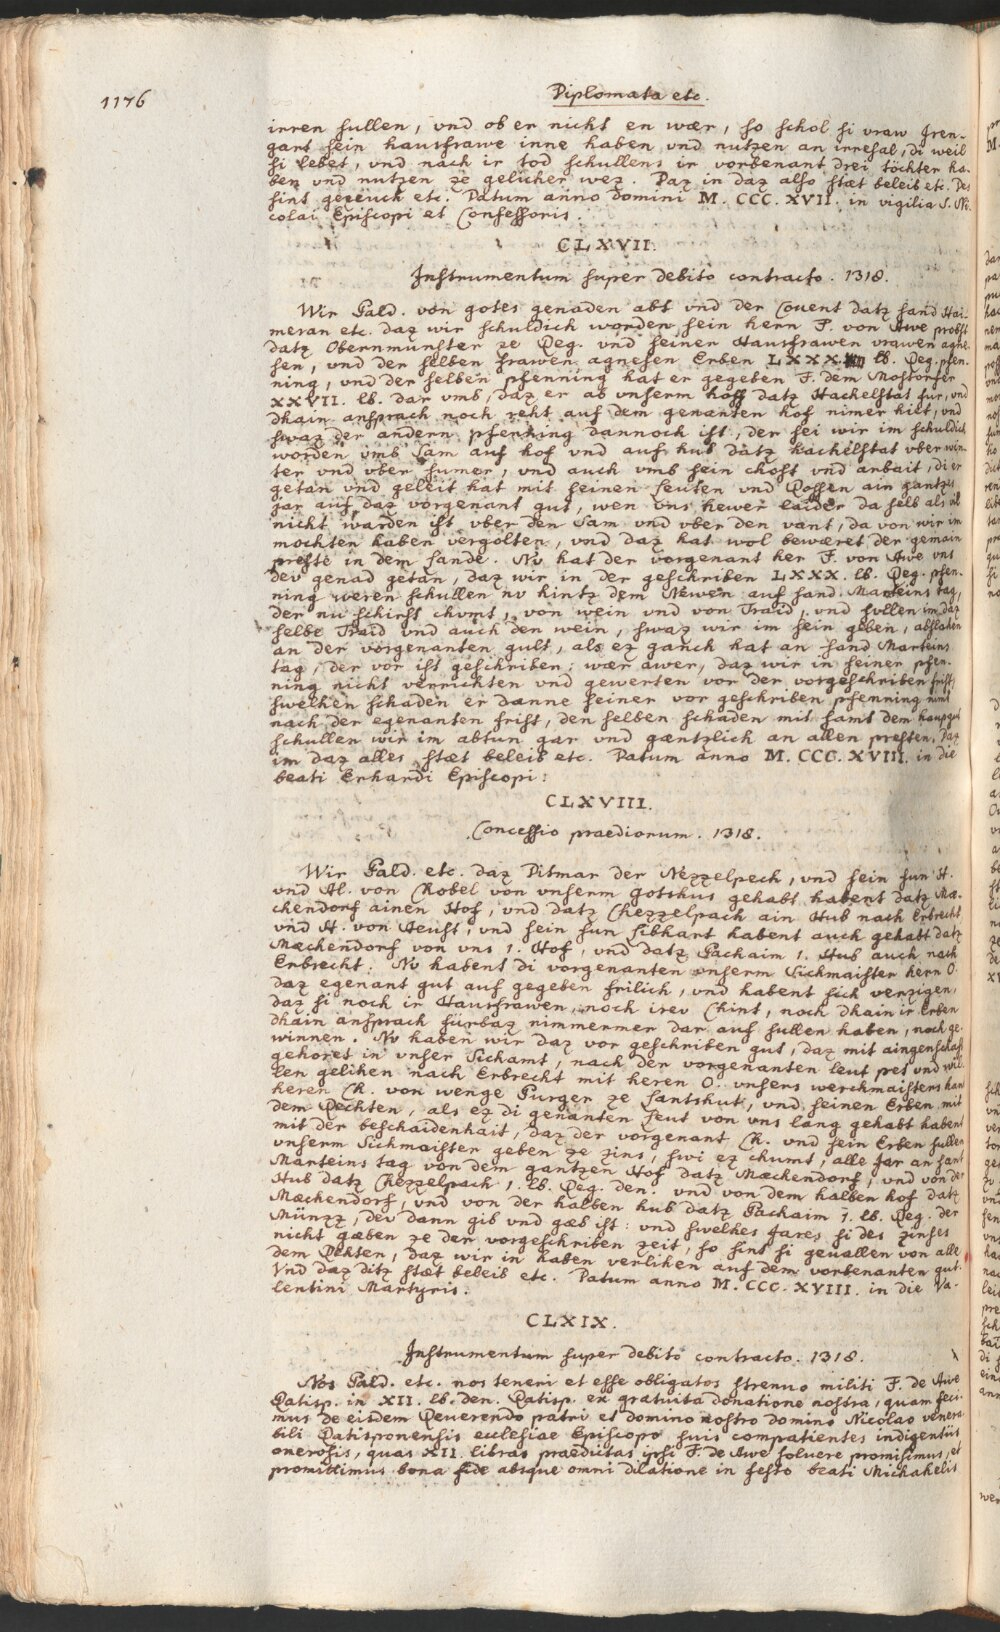 1176
Diplomata etc.
irren sullen, vnd ob er nicht en wær, so schol si vraw Iren-
gart sein hausfrawe inne haben vnd nutzen an irresal, di weil
si lebet, vnd nach ir tod schullens ir vorbenant drei töchter ha-
ben vnd nutzen ze gelicher wez. Daz in daz also stæt beleib etc. Des
sint gezeuck etc. Datum anno Domini M. CCC. XVII. in vigilia S. Ni-
colai Episcopi et Confessoris.
CLXVII.
Instrumentum super debito contracto. 1318.
Wir Bald. von gotes genaden abt vnd der Covent datz sand Hai-
meran etc. daz wir schuldich worden sein hern F. von Awe probst
datz Obernmünster ze Reg. vnd seiner Hausfrawen vrawen agne-
sen, vnd der selben frawen agnesen Erben LXXX lb. Reg. pfen-
ning, vnd der selben pfenning hat er gegeben F. dem Mostorfer
XXVII. lb. dar vmb, daz er ab vnserm hoff datz Hachelstat fur, vnd
dhain ansprach noch reht auf dem genanten hof nimer hiet, vnd
swaz der andern pfenning dannoch ist, der sei wir im schuldich
worden vmb Sam auf hof vnd auf hub datz hachelstat vber win-
ter vnd vber sumer, vnd auch vmb sein chost vnd arbait, di er
getan vnd geleit hat mit seinen Leuten vnd Rossen ain gantzes
jar auf daz vorgenant gut, wen vns hewer laider da selb als vil
nicht warden ist vber den Sam vnd vber den vant, da von wir im
mochten haben vergolten, vnd daz hat wol bewæret der gemain
preste in dem Lande. Nv hat der vorgenant her F. von Awe vns
dev genad getan, daz wir in der geschriben LXXX. lb. Reg. pfen-
ning weren schullen nv hintz dem Newen auf sand Marteins tag,
der nu schirst chvmt, von wein vnd von Traid, vnd sullen im daz
selbe Traid vnd auch den wein, swaz wir im sein geben, abslahen
an der vorgenanten gult, als ez ganch hat an sand Marteins
tag, der vor ist geschriben: wær awer, daz wir in seiner pfen-
ning nicht verrichten vnd gewerten vor der vorgeschriben frist,
swelhen schaden er danne seiner vor geschriben pfenning nimt
nach der egenanten frist, den selben schaden mit samt dem haupgut
schullen wir im abtun gar vnd gæntzlich an allen presten. Daz
im daz alles stæt beleib etc. Datum anno M. CCC. XVIII. in die
beati Erhardi Episcopi:
CLXVIII.
Concessio praediorum. 1318.
Wir Bald. etc. daz Ditmar der Nezzelpech, vnd sein sun H.
vnd Al. von Chobel von vnserm gotshus gehabt habent datz Mæ-
chendorf ainen Hof, vnd datz Chezzelpach ain Hub nach Erbrecht,
vnd H. von Aeust, vnd sein sun Sibhart habent auch gehabt datz
Mæchendorf von vns 1. Hof, vnd datz Pachaim 1. Hub auch nach
Erbrecht: Nv habent di vorgenanten vnserm Sichmaister hern O.
daz egenant gut auf gegeben frilich, vnd habent sich verzigen,
daz si noch ir Hausfrawen, noch irev Chint, noch dhain ir Erben
dhain ansprach fürbaz nimmermer dar auf sullen haben, noch ge-
winnen. Nv haben wir daz vor geschriben gut, daz mit aingenschaft
gehoret in vnser Sichamt, nach der vorgenanten leut pet vnd wil-
len gelihen nach Erbrecht mit heren O. vnsers werchmaisters hant
heren Ch. von wenge Purger ze Lantshut, vnd seinen Erben mit
dem Rechten, als ez di genanten Leut von vns lang gehabt habent
mit der beschaidenhait, daz der vorgenant Ch. vnd sein Erben sullen
vnserm Sichmaister geben ze zins, swi ez chumt, alle Jar an sant
Marteins tag von dem gantzen Hof datz Mæchendorf, vnd von der
Hub datz Chezzelpach 1. lb. Reg. den. vnd von dem halben hof datz
Mæchendorf, vnd von der halben hub datz Pachaim 1. lb. Reg. der
Münzz, dev dann gib vnd gæb ist: vnd swelhes Jares si des zinses
nicht gæben ze der vorgeschriben zeit, so sint si geuallen von alle
dem Rehten, daz wir in haben verlihen auf dem vorbenanten gut.
Vnd daz ditz stæt beleib etc. Datum anno M. CCC. XVIII. in die Va-
lentini Martyris.
CLXIX.
Instrumentum super debito contracto. 1318.
Nos Bald. etc. nos teneri et esse obligatos strenuo militi F. de Awe
Ratisp. in XII. lb. den. Ratisp. ex gratuita donatione nostra, quam feci-
mus de eisdem Reuerendo patri et domino nostro domino Nicolao venera-
bili Ratisponensis ecclesiae Episcopo suis compatientes indigentiis
onerosis, quas XII libras praedictas ipsi F. de Awe soluere promisimus, et
promittimus bona fide absque omni dilatione in festo beati Michahelis